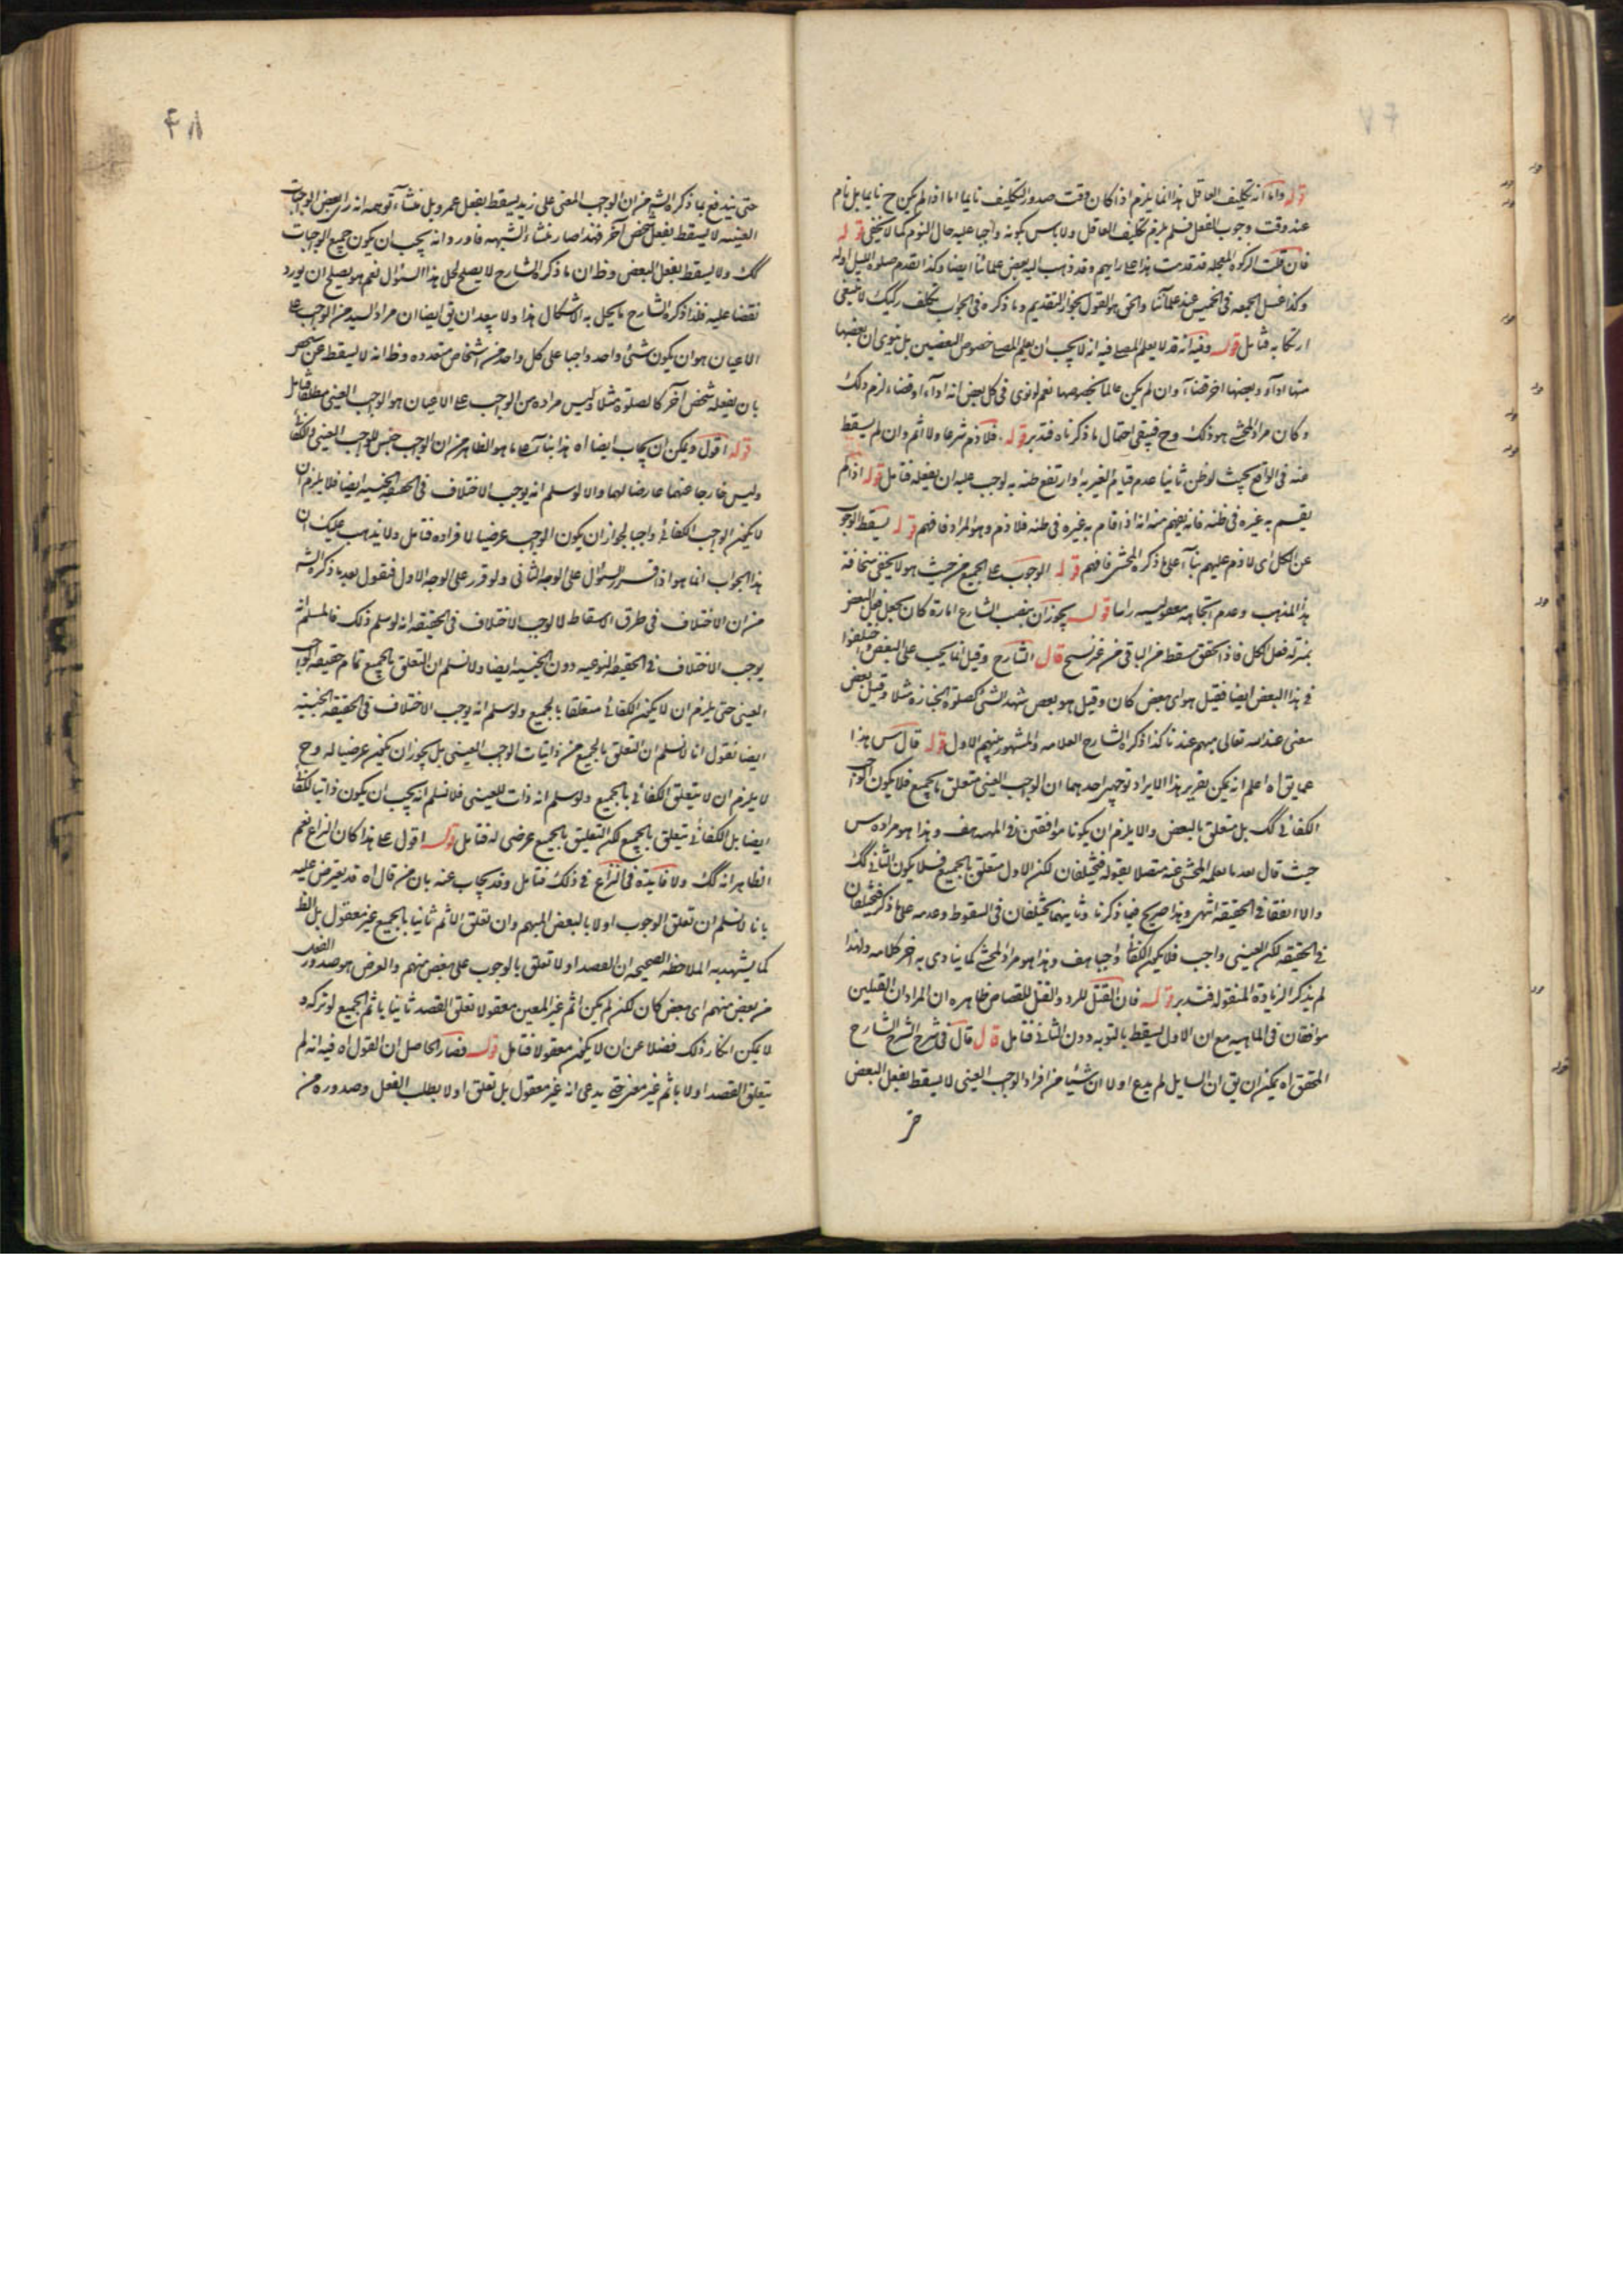 قوله واما انه تكليف الغافل هذا انما يلزم اذا كان وقت صدور التكليف نايما اما اذا لم يكن ح نايما بل نام
عند وقت وجوب الفعل فلم يلزم تكليف الغافل ولا باس بكونه واجبا عليه حال النوم كما لا يخفى قوله
فان قلت الزكوة المعجله قد قدمت هذا على رايهم وقد ذهب اليه بعض علمائنا ايضا وكذا تقدم صلوة الليل اوله
وكذا غسل الجمعه فى الخميس عند علمائنا والحق هو القول بجواز التقديم وما ذكره فى الجواب تكلف ركيك لا ينبغى
ارتكابه فتامل قوله وفيه انه قد لا يعلم المصلى فيه انه لا يجب ان يعلم المصلى خصوص البعضين بل ينوى ان بعضها
منها اداء وبعضها اخر قضاء وان لم يكن عالما بخصوصها نعم لو نوى فى كل بعض انه اداء او قضاء لزم ذلك
وكان مراد المحشى هو ذلك وح فيبقى احتمال ما ذكرناه فتدبر قوله فلا ذم شرعا ولا اثم وان لم يسقط
عنه فى الواقع بحيث لو ظن ثانيا عدم قيام الغير به او ارتفع ظنه به لوجب عليه ان يفعله فتامل قوله اذا لم
يقسم به غيره فى ظنه فانه يفهم منه انه اذا قام به غيره فى ظنه فلا ذم وهو المراد فافهم قوله يسقط الوجوب
عن الكل اى لا ذم عليهم بناء على ما ذكره المحشى فافهم قوله الوجوب على الجميع من حيث هو لا يخفى سخافة
هذا المذهب وعدم اتجاهه معقوليه راسا قوله يجوز ان ينصب الشارع امارة كان يجعل فعل البعض
بمنزله فعل الكل فاذا تحقق سقط من الباقى من غير نسخ قال الشارح وقيل انما يجب على البعض واختلفوا
فى هذا البعض ايضا فقيل هو اى بعض كان وقيل هو بعض شهد الشئ كصلوة الجنازه مثلا وقيل بعض
معنى عند الله تعالى مبهم عندنا كذا ذكره الشارح العلامه والمشهور بينهم الاول قوله قال س هذا
مما يق اه اعلم انه يمكن تقرير هذا الايراد بوجهين احدهما ان الوجوب العينى متعلق بالجميع فلا يكون الواجب
الكفائى كك بل متعلق بالبعض والا يلزم ان يكونا موافقين فى المهيه هف وهذا هو مراده س
حيث قال بعد ما نقله المحشى عنه متصلا بقوله فيختلفان لكن الاول متعلق بالجميع فلا يكون الثانى كك
والا اتفقا فى الحقيقه انتهى وهذا صريح فيما ذكرنا وثانيهما يختلفان فى السقوط وعدمه على ما ذكر فيختلفان
فى الحقيقه لكن العينى واجب فلا يكون الكفائى واجبا هف وهذا هو مراد المحشى كما ينادى به اخر كلامه ولهذا
لم يذكر الزيادة المنقوله فتدبر قوله فان القتل للردة والقتل للقصاص ظاهره ان المراد ان القتلين
موافقان فى الماهيه مع ان الاول يسقط بالتوبه دون الثانى فتامل قال قال فى شرح الشرح الشارح
المحقق اه يمكن ان يق ان السايل لم يدع اولا ان شيئا من افراد الواجب العينى لا يسقط بفعل البعض
حتى يندفع بما ذكره الش من ان الوجوب المعنى على زيد يسقط بفعل عمرو بل منشاء توهمه انه راى بعض الواجبات
العينيه لا يسقط بفعل شخص آخر فهذا صار منشاء الشبهه فاورد انه يجب ان يكون جميع الواجبات
كك ولا يسقط بفعل البعض وظ ان ما ذكره الشارح لا يصلح لحل هذا السؤال نعم هو يصلح ان يورد
نقضا عليه فلذا ذكر الشارح ما يحل به الاشكال هذا ولا يبعد ان يق ايضا ان مراد السيد من الواجب على
الاعيان هو ان يكون شئ واحد واجبا على كل واحد من اشخاص متعدده وظ انه لا يسقط عن شخص
بان يفعله شخص آخر كالصلوة مثلا وليس مراده من الواجب على الاعيان هو الواجب العينى مطلقا فتامل
قوله اقول ويمكن ان يجاب ايضا اه هذا بناء على ما هو الظاهر من ان الوجوب جنس للواجب العينى والكفائى
وليس خارجا عنهما عارضا لهما والا لو سلم انه يوجب الاختلاف فى الحقيقه الجنسيه ايضا فلا يلزم ان
لا يكون الوجوب الكفائى واجبا لجواز ان يكون الوجوب عرضيا لافراده فتامل ولا يذهب عليك ان
هذا الجواب انما هو اذا قرر السؤال على الوجه الثانى ولو قرر على الوجه الاول فنقول بعد ما ذكره الش
من ان الاختلاف فى طرق الاسقاط لا يوجب الاختلاف فى الحقيقه انه لو سلم ذلك فالمسلم انه
يوجب الاختلاف فى الحقيقه النوعيه دون الجنسيه ايضا ولا نسلم ان التعلق بالجميع تمام حقيقه الواجب
العينى حتى يلزم ان لا يكون الكفائى متعلقا بالجميع ولو سلم انه يوجب الاختلاف فى الحقيقه الجنسيه
ايضا نقول انا لا نسلم ان التعلق بالجميع من ذاتيات الوجوب العينى بل يجوز ان يكون عرضيا له وح
لا يلزم ان لا يتعلق الكفائى بالجميع ولو سلم انه ذات للعينى فلا نسلم انه يجب ان يكون ذاتيا للكفائى
ايضا بل الكفائى يتعلق بالجميع لكن التعلق بالجميع عرضى له فتامل قوله اقول على هذا كان النزاع نعم
الظاهر انه كك ولا فايدة فى النزاع فى ذلك فتامل وقد يجاب عنه بان من قال اه قد يعترض عليه
بانا لا نسلم ان تعلق الوجوب اولا بالبعض المبهم وان تعلق الاثم ثانيا بالجميع غير معقول بل الظ
كما يشهد به الملاحظه الصحيحه ان القصد اولا تعلق بالوجوب على بعض منهم والغرض هو صدور الفعل
من بعض منهم اى بعض كان لكن لم يكن اثم غير المعين معقولا تعلق القصد ثانيا باثم الجميع لو تركه و
لا يمكن انكار ذلك فضلا عن ان لا يكون معقولا فتامل قوله فصار الحاصل ان القول اه فيه انه لم
يتعلق القصد اولا باثم غير معين حتى يدعى انه غير معقول بل تعلق اولا بطلب الفعل وصدوره من